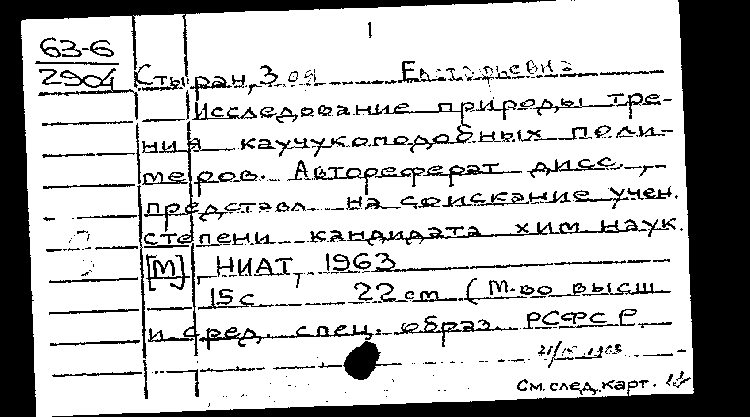 1
63-6
2904 Стыран, Зоя
Исследование природы тре-
ния каучукоподобных поли-
меров. Автореферат дисс.,
представл. на соискание учен.
степени кандидата хим наук.
[М], НИАТ, 1963
15 с 22 cm (М-во высш
и сред. спец. образ. РСФСР
См. след. карт.